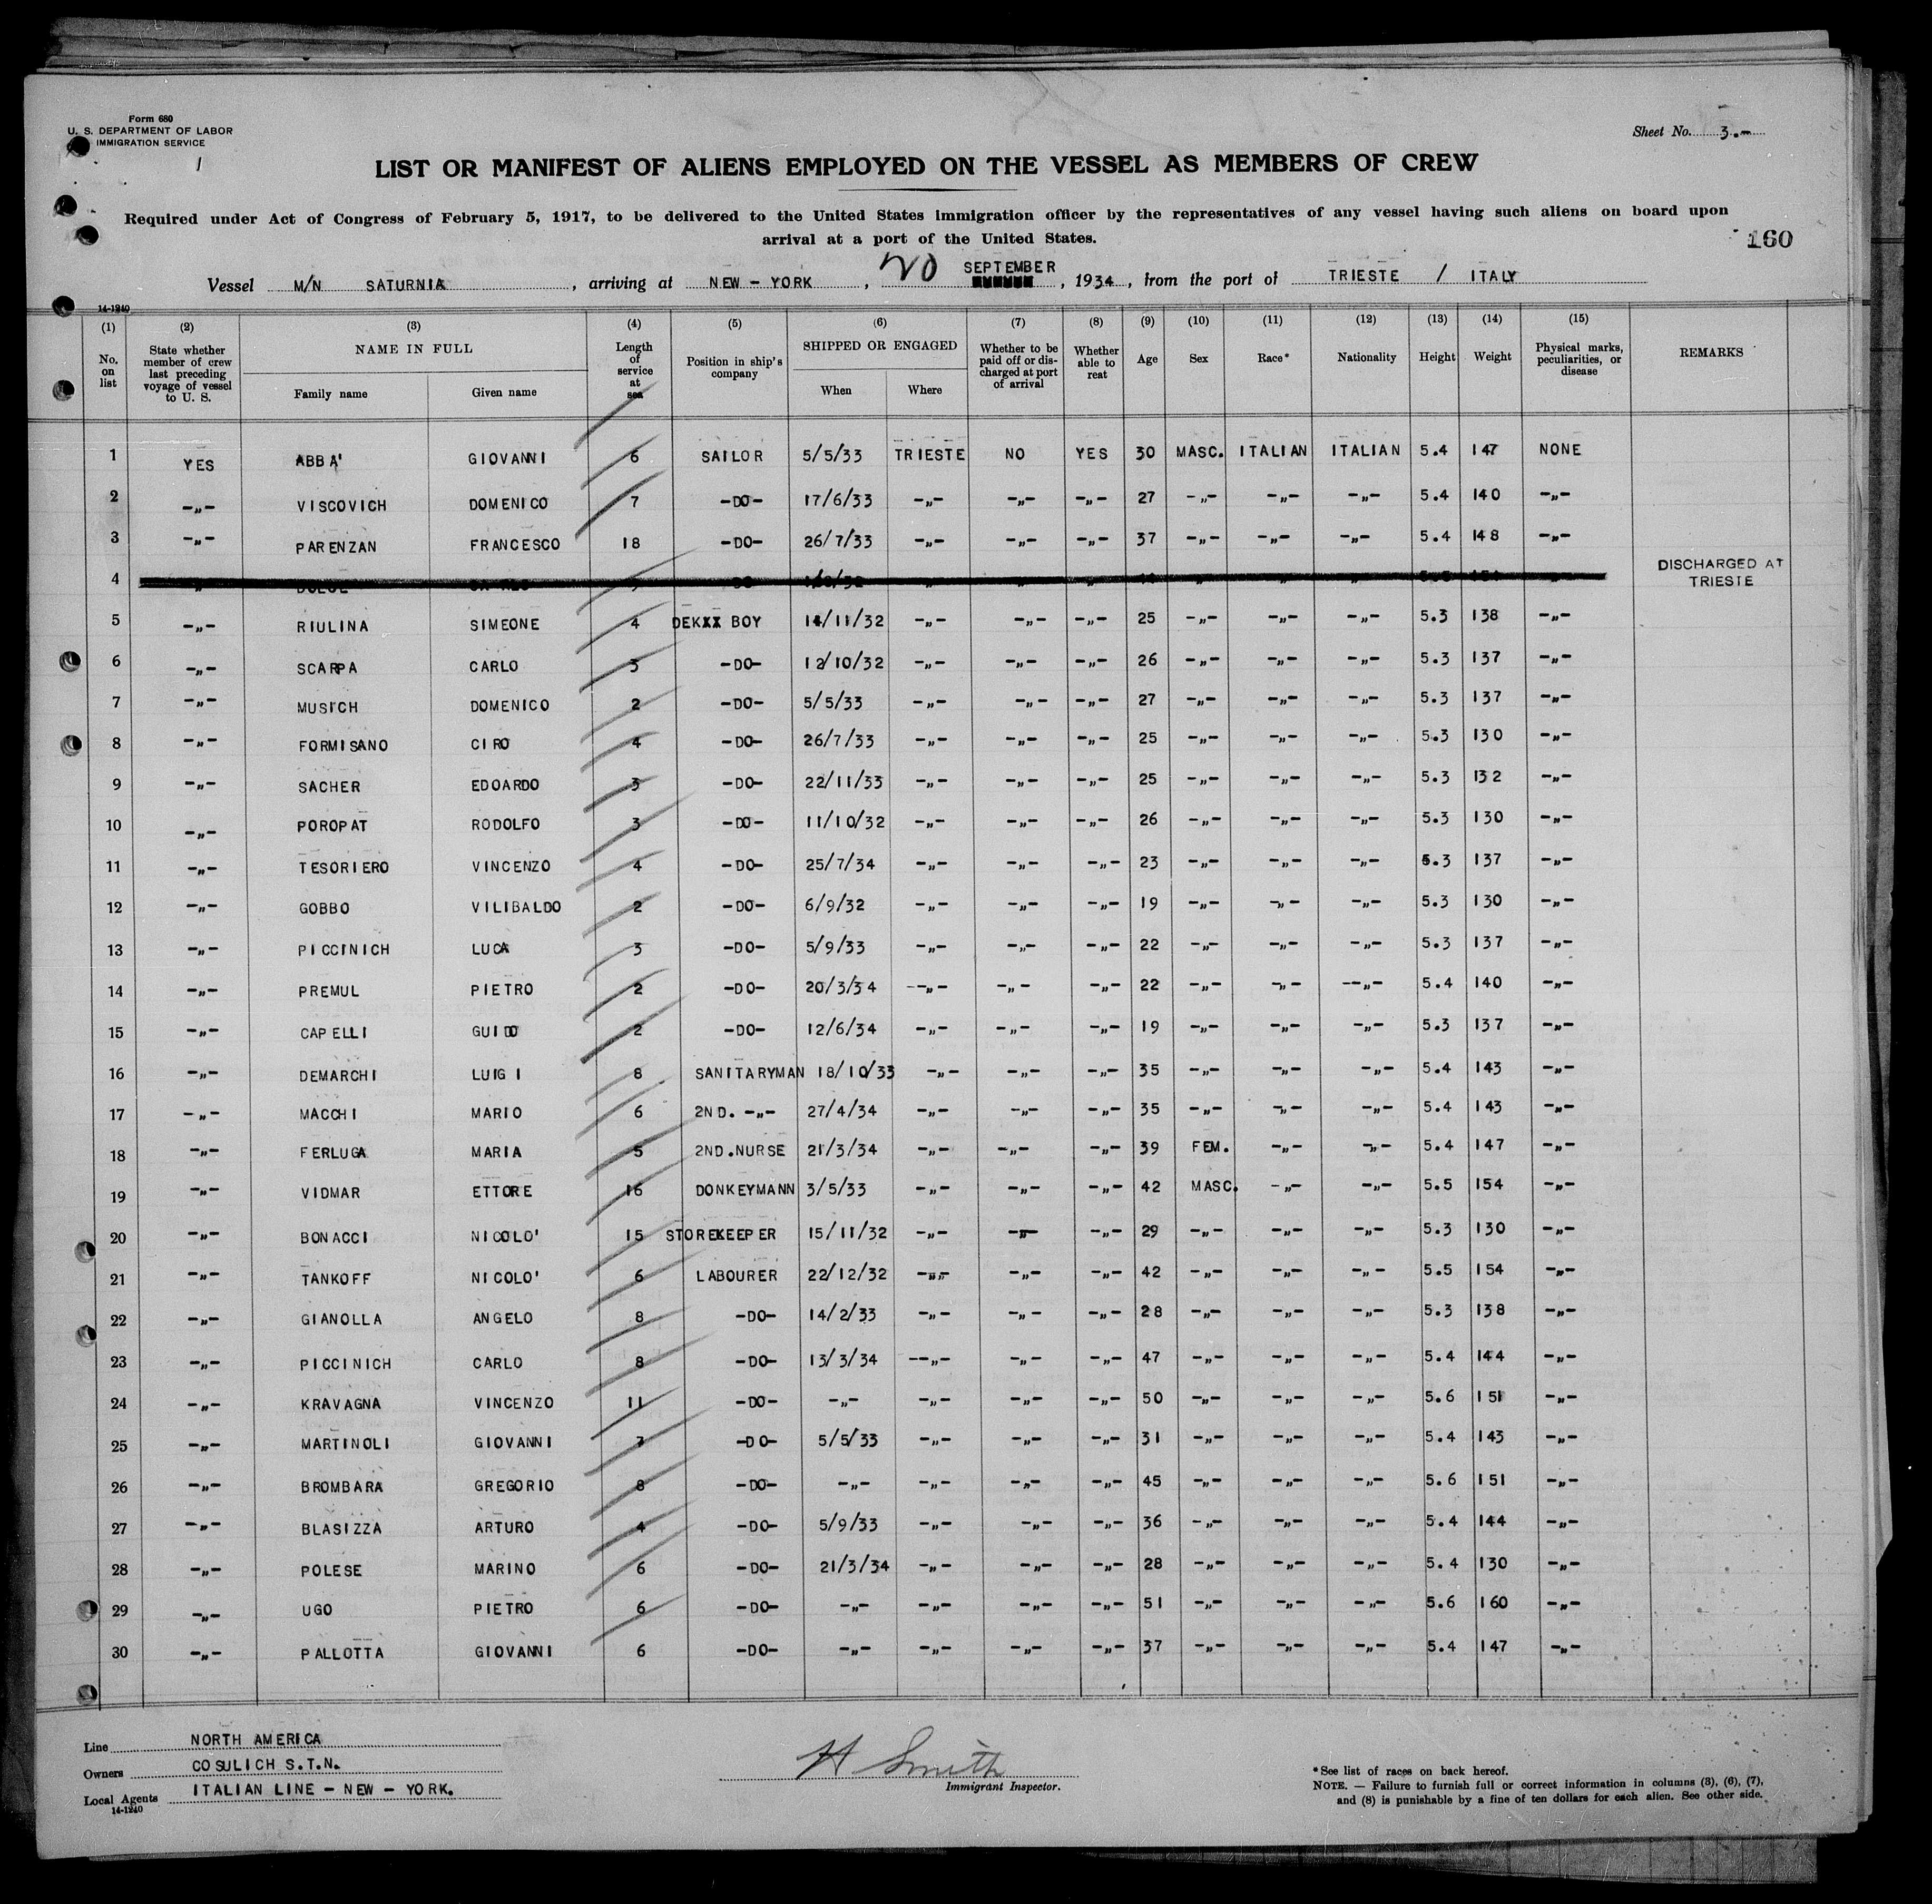 Form 680
U. S. DEPARTMENT OF LABOR
IMMIGRATION SERVICE
1
Sheet No. 3.-
LIST OR MANIFEST OF ALIENS EMPLOYED ON THE VESSEL AS MEMBERS OF CREW
Required under Act of Congress of February 5, 1917, to be delivered to the United States immigration officer by the representatives of any vessel having such aliens on board upon
arrival at a port of the United States.
160
Vessel M/N SATURNIA, arriving at NEW-YORK, 20 SEPTEMBER, 1934, from the port of TRIESTE / ITALY
14-1240
(1) (2) (3) (4) (5) (6) (7) (8) (9) (10) (11) (12) (13) (14) (15)
No. on list State whether member of crew last preceding voyage of vessel to U. S. NAME IN FULL Family name Given name Length of service at sea Position in ship's company SHIPPED OR ENGAGED When Where Whether to be paid off or discharged at port of arrival Whether able to reat Age Sex Race* Nationality Height Weight Physical marks, peculiarities, or disease REMARKS
1 YES ABBA' GIOVANNI 6 SAILOR 5/5/33 TRIESTE NO YES 30 MASC. ITALIAN ITALIAN 5.4 147 NONE
2 -"- VISCOVICH DOMENICO 7 -DO- 17/6/33 -"- -"- -"- 27 -"- -"- -"- 5.4 140 -"-
3 -"- PARENZAN FRANCESCO 18 -DO- 26/7/33 -"- -"- -"- 37 -"- -"- -"- 5.4 148 -"-
4 DISCHARGED AT TRIESTE
5 -"- RIULINA SIMEONE 4 DEKXX BOY 14/11/32 -"- -"- -"- 25 -"- -"- -"- 5.3 138 -"-
6 -"- SCARPA CARLO 3 -DO- 12/10/32 -"- -"- -"- 26 -"- -"- -"- 5.3 137 -"-
7 -"- MUSICH DOMENICO 2 -DO- 5/5/33 -"- -"- -"- 27 -"- -"- -"- 5.3 137 -"-
8 -"- FORMISANO CIRO 4 -DO- 26/7/33 -"- -"- -"- 25 -"- -"- -"- 5.3 130 -"-
9 -"- SACHER EDOARDO 3 -DO- 22/11/33 -"- -"- -"- 25 -"- -"- -"- 5.3 132 -"-
10 -"- POROPAT RODOLFO 3 -DO- 11/10/32 -"- -"- -"- 26 -"- -"- -"- 5.3 130 -"-
11 -"- TESORIERO VINCENZO 4 -DO- 25/7/34 -"- -"- -"- 23 -"- -"- -"- 5.3 137 -"-
12 -"- GOBBO VILIBALDO 2 -DO- 6/9/32 -"- -"- -"- 19 -"- -"- -"- 5.3 130 -"-
13 -"- PICCINICH LUCA 3 -DO- 5/9/33 -"- -"- -"- 22 -"- -"- -"- 5.3 137 -"-
14 -"- PREMUL PIETRO 2 -DO- 20/3/34 --"- -"- -"- 22 -"- -"- --"- 5.4 140 -"-
15 -"- CAPELLI GUIDO 2 -DO- 12/6/34 -"- -"- -"- 19 -"- -"- -"- 5.3 137 -"-
16 -"- DEMARCHI LUIGI 8 SANITARYMAN 18/10/33 -"- -"- -"- 35 -"- -"- -"- 5.4 143 -"-
17 -"- MACCHI MARIO 6 2ND. -"- 27/4/34 -"- -"- -"- 35 -"- -"- -"- 5.4 143 -"-
18 -"- FERLUGA MARIA 5 2ND.NURSE 21/3/34 -"- -"- -"- 39 FEM. -"- -"- 5.4 147 -"-
19 -"- VIDMAR ETTORE 16 DONKEYMANN 3/5/33 -"- -"- -"- 42 MASC. -"- -"- 5.5 154 -"-
20 -"- BONACCI NICOLO' 15 STOREKEEPER 15/11/32 -"- -"- -"- 29 -"- -"- -"- 5.3 130 -"-
21 -"- TANKOFF NICOLO' 6 LABOURER 22/12/32 -"- -"- -"- 42 -"- -"- -"- 5.5 154 -"-
22 -"- GIANOLLA ANGELO 8 -DO- 14/2/33 -"- -"- -"- 28 -"- -"- -"- 5.3 138 -"-
23 -"- PICCINICH CARLO 8 -DO- 13/3/34 --"- -"- -"- 47 -"- -"- -"- 5.4 144 -"-
24 -"- KRAVAGNA VINCENZO 11 -DO- -"- -"- -"- -"- 50 -"- -"- -"- 5.6 151 -"-
25 -"- MARTINOLI GIOVANNI 7 -DO- 5/5/33 -"- -"- -"- 31 -"- -"- -"- 5.4 143 -"-
26 -"- BROMBARA GREGORIO 8 -DO- -"- -"- -"- -"- 45 -"- -"- -"- 5.6 151 -"-
27 -"- BLASIZZA ARTURO 4 -DO- 5/9/33 -"- -"- -"- 36 -"- -"- -"- 5.4 144 -"-
28 -"- POLESE MARINO 6 -DO- 21/3/34 -"- -"- -"- 28 -"- -"- -"- 5.4 130 -"-
29 -"- UGO PIETRO 6 -DO- -"- -"- -"- -"- 51 -"- -"- -"- 5.6 160 -"-
30 -"- PALLOTTA GIOVANNI 6 -DO- -"- -"- -"- -"- 37 -"- -"- -"- 5.4 147 -"-
Line NORTH AMERICA
Owners COSULICH S.T.N.
Local Agents ITALIAN LINE - NEW - YORK.
14-1240
H Smith
Immigrant Inspector.
*See list of races on back hereof.
NOTE. — Failure to furnish full or correct information in columns (3), (6), (7),
and (8) is punishable by a fine of ten dollars for each alien. See other side.